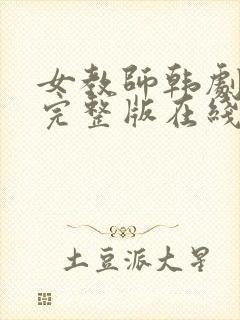 女教師韩劇
完整版在綫
土豆派大星